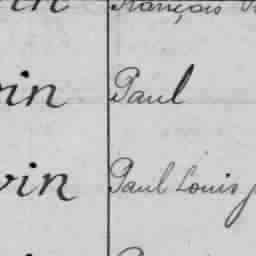 François
in Paul
vin Paul Louis